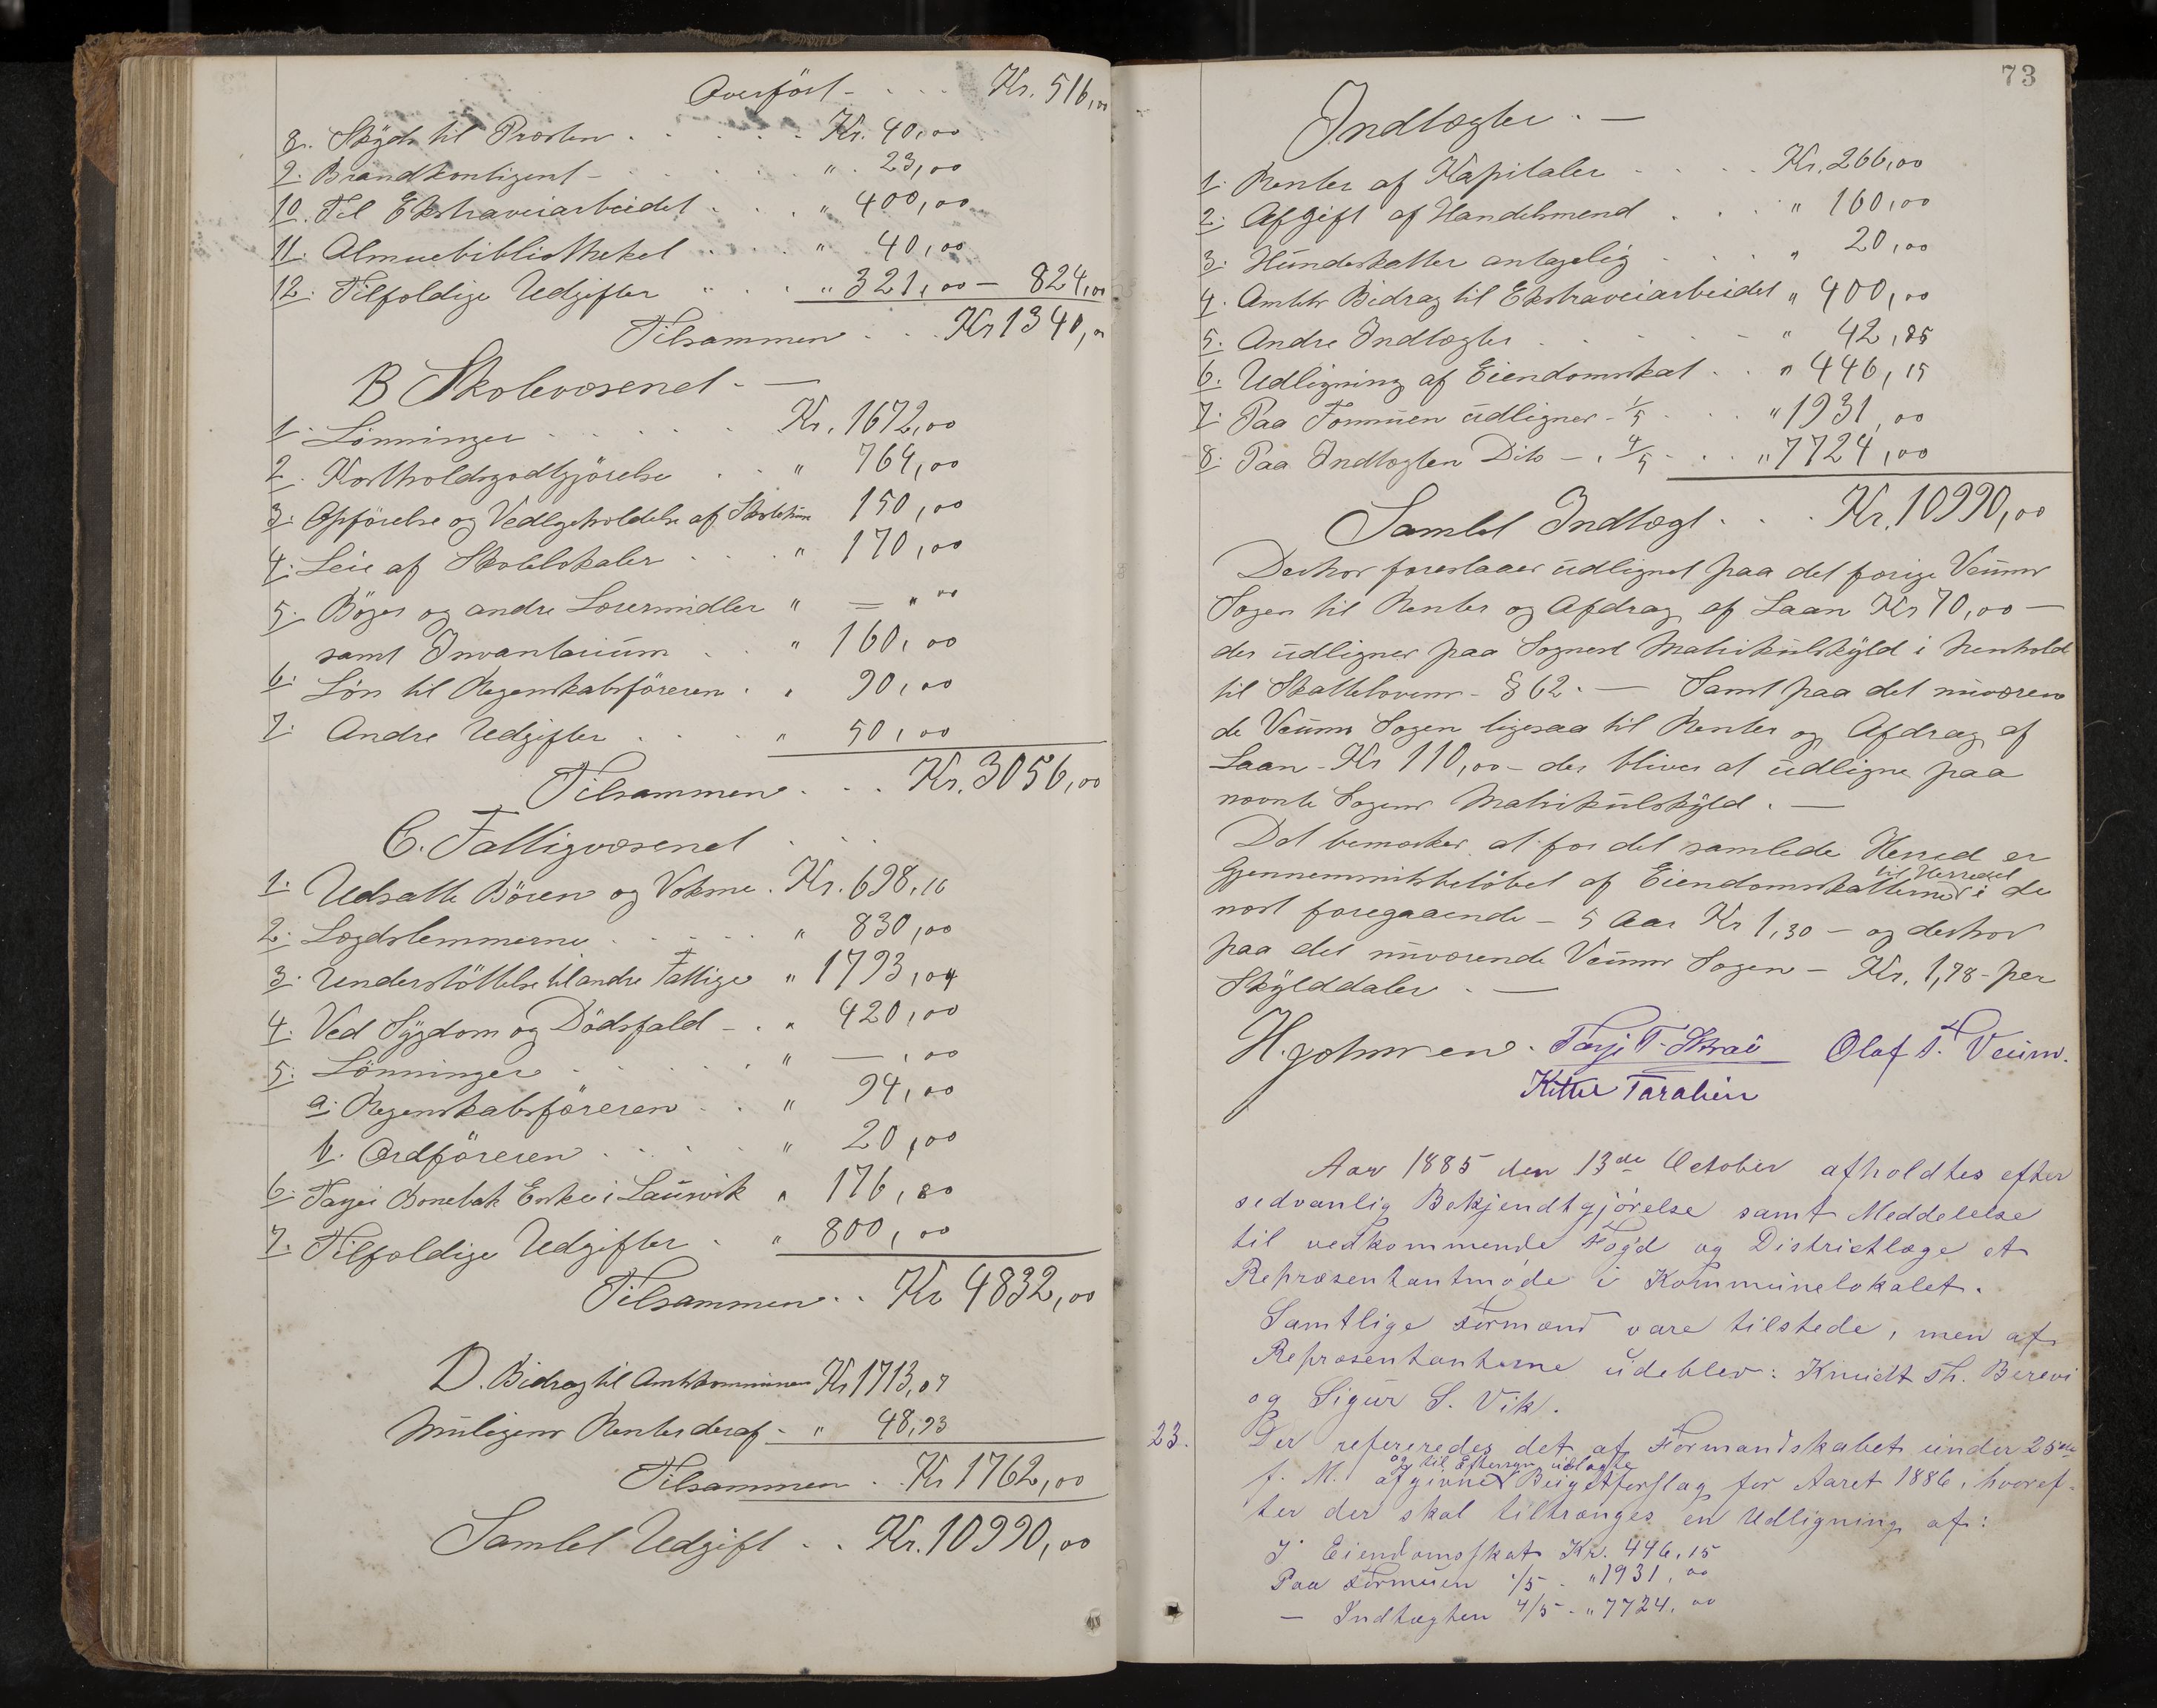 Overført - . . . Kr. 516,00
8. Skyds til Præsten . . . . . Kr. 40,00
9. Brandkontigent - . . . . " 23,00
10. Til Ekstraveiarbeidet . . . " 400,00
11. Almuebibliotheket . . . " 40,00
12. Tilfældige Udgifter " . . " 321,00 - 824,00
Tilsammen . . . Kr 1340,00
B Skolevæsenet. —
1. Lønninger . . . . . Kr. 1672,00
2. Kostholdsgodtgjørelse . . " 764,00
3. Opførelse og Vedligeholdelse af Skolehuse 150,00
4. Leie af Skolelokaler . . . " 170,00
5. Bøger og andre Læremidler " = " 00
samt Inventarium . . " 160,00
6. Løn til Regnskabsføreren . " 90,00
7. Andre Udgifter . . . " 50,00
Tilsammen . . . Kr. 3056,00
C. Fattigvæsenet . . .
1. Udsatte Børen og Voksne . Kr. 698,16
2. Lægdslemmerne . . . . " 830,00
3. Understøttelse til andre Fattige " 1793,04
4. Ved Sygdom og Dødsfald - . " 420,00
5. Lønninger . . . . . " — ,00
a. Regnskabsføreren . . " 94,00
b. Ordføreren . . . . " 20,00
6. Tarjei Bonebak Enke i Laurvik " 176,80
7. Tilfældige Udgifter . " 800,00
Tilsammen . . Kr 4832,00
D. Bidrag til Amtskommunen Kr 1713,07
Muligens Renter deraf - " 48,93
Tilsammen . . Kr 1762,00
Samlet Udgift . . Kr. 10990,00
73
Indtægter . —
1. Renter af Kapitaler . . . . Kr. 266,00
2. Afgift af Handelsmend . . . " 160,00
3. Hundeskatter antagelig . . . " 20,00
4. Amtets Bidrag til Ekstraveiarbeidet " 400,00
5. Andre Indtægter . . . . " 42,85
6. Udligning af Eiendomsskat . . " 446,15
7. Paa Formuen udlignes - 1/5 . . . " 1931,00
8. Paa Indtægten Dito - . 4/5 - . . " 7724,00
Samlet Indtægt . . . Kr. 10990,00
Desfor foreslaaes udlignet paa det forige Veums
Sogen til Renter og Afdrag af Laan Kr 70,00 —
der udlignes paa Sognets Matrikulskyld i Henhold
til Skattelovens - § 62. — Samt paa det nuværen
de Veums Sogen ligesaa til Renter og Afdrag af
Laan - Kr 110,00 - der bliver at udligne paa
nævnte Sogens Matrikulskyld . —
Det bemærkes at for det samlede Herred er
Gjennemsnitsbeløbet af Eiendomsskatterne til Herredet i de
næst foregaaende - 5 Aar Kr 1,30 - og desfor
paa det nuværende Veums Sogen - Kr. 1,78 - per
Skylddaler . —
H. Johnsen. Tarje T. Skrei Olaf T. Veum.
Kittil Taraldlien
Aar 1885 den 13de October afholdtes efter
sedvanlig Bekjendtgjørelse samt Meddelelse
til vedkommende Fogd og Districtlæge et
Repræsentantmøde i Kommunelokalet.
Samtlige Formænd vare tilstede, men af
Repræsentanterne udeblev: Knudt Th. Berevi
og Sigur S. Vik.
23. Der refereredes det af Formandskabet under 25de
f. M. afgivne og til Eftersyn udlagte Budgetforslag for Aaret 1886, hvoref-
ter der skal tiltrænges en Udligning af:
I Eiendomsskat Kr. 446,15
Paa Formuen 1/5 - " 1931,00
— Indtægten 4/5 - " 7724,00